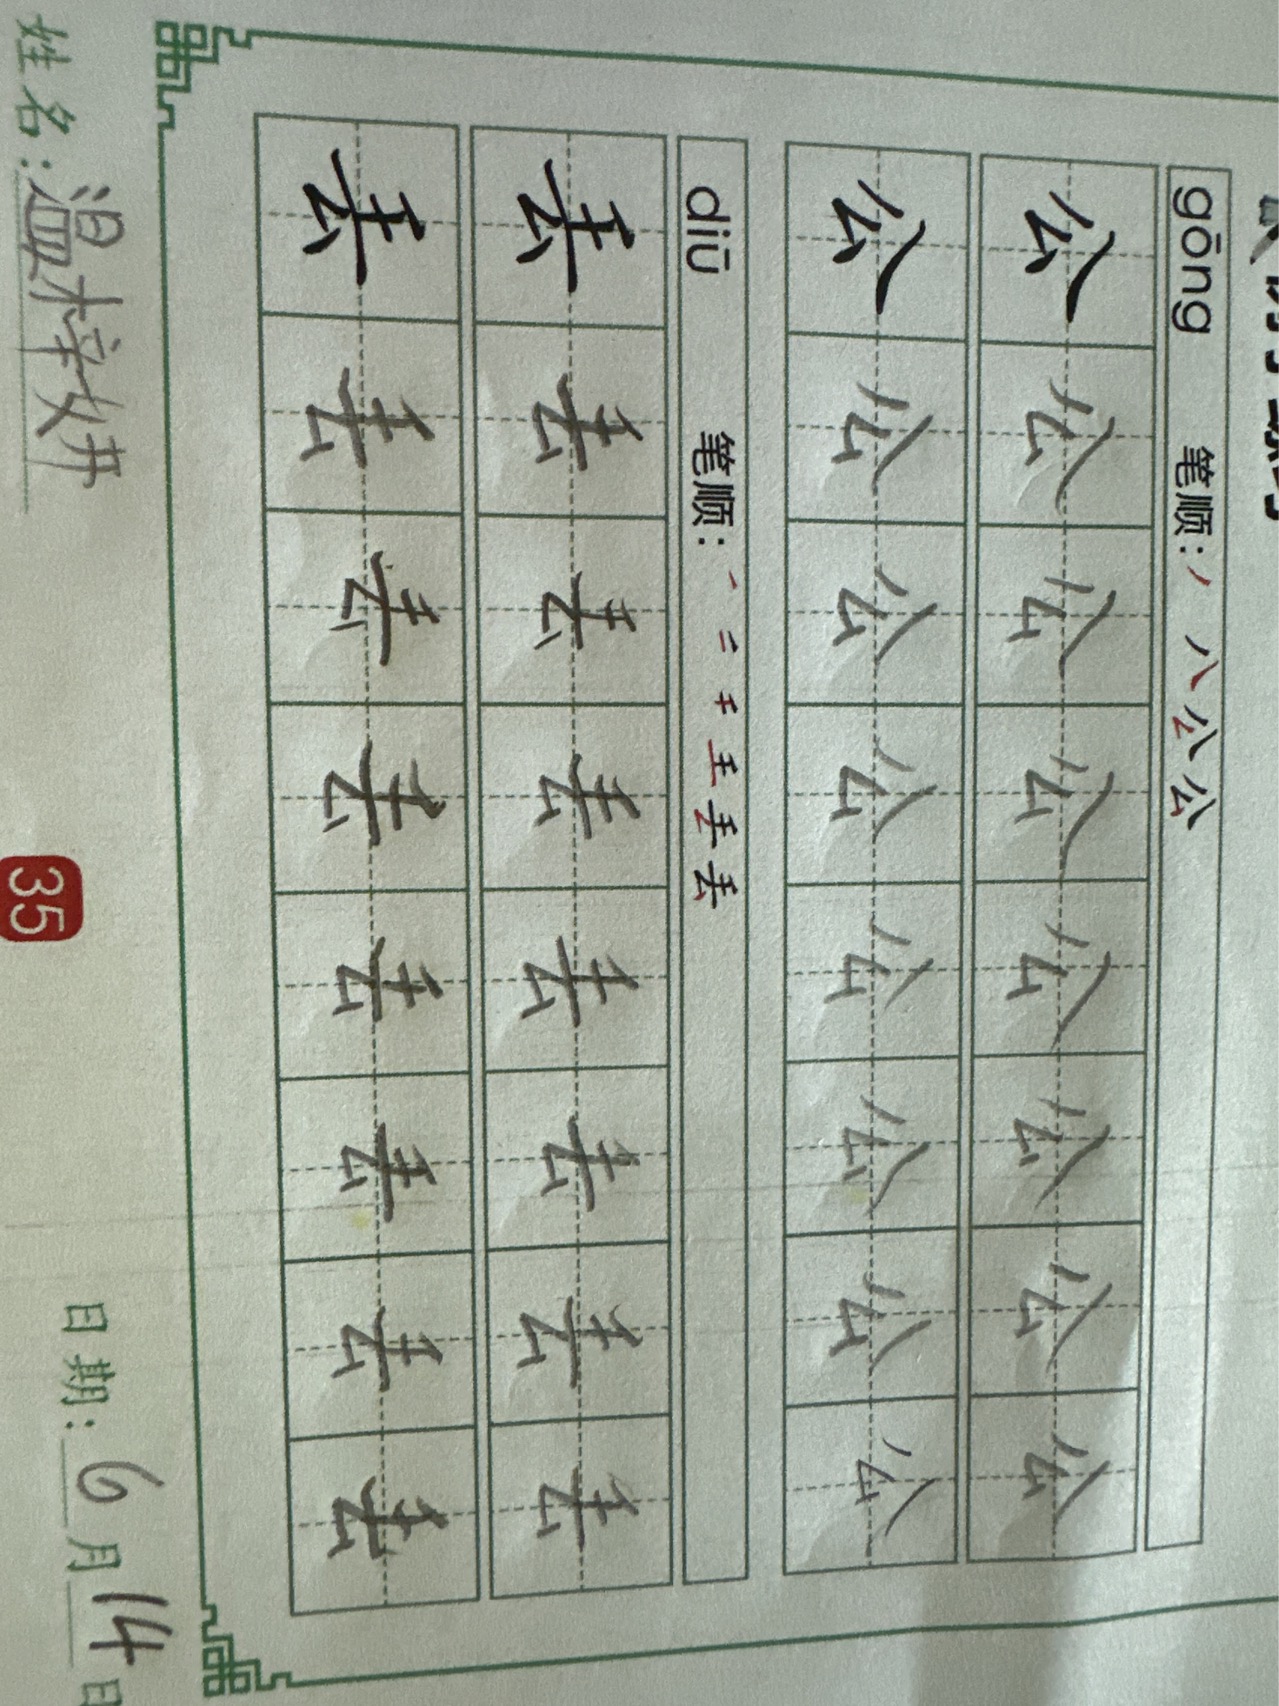 gōng 笔顺：丿 八 公 公
公 公 公 公 公 公 公 公
公 公 公 公 公 公 公 公
diū 笔顺：一 二 千 王 丢 丢
丢 丢 丢 丢 丢 丢 丢 丢
丢 丢 丢 丢 丢 丢 丢 丢
姓名：温梓妍 35 日期：6月14日